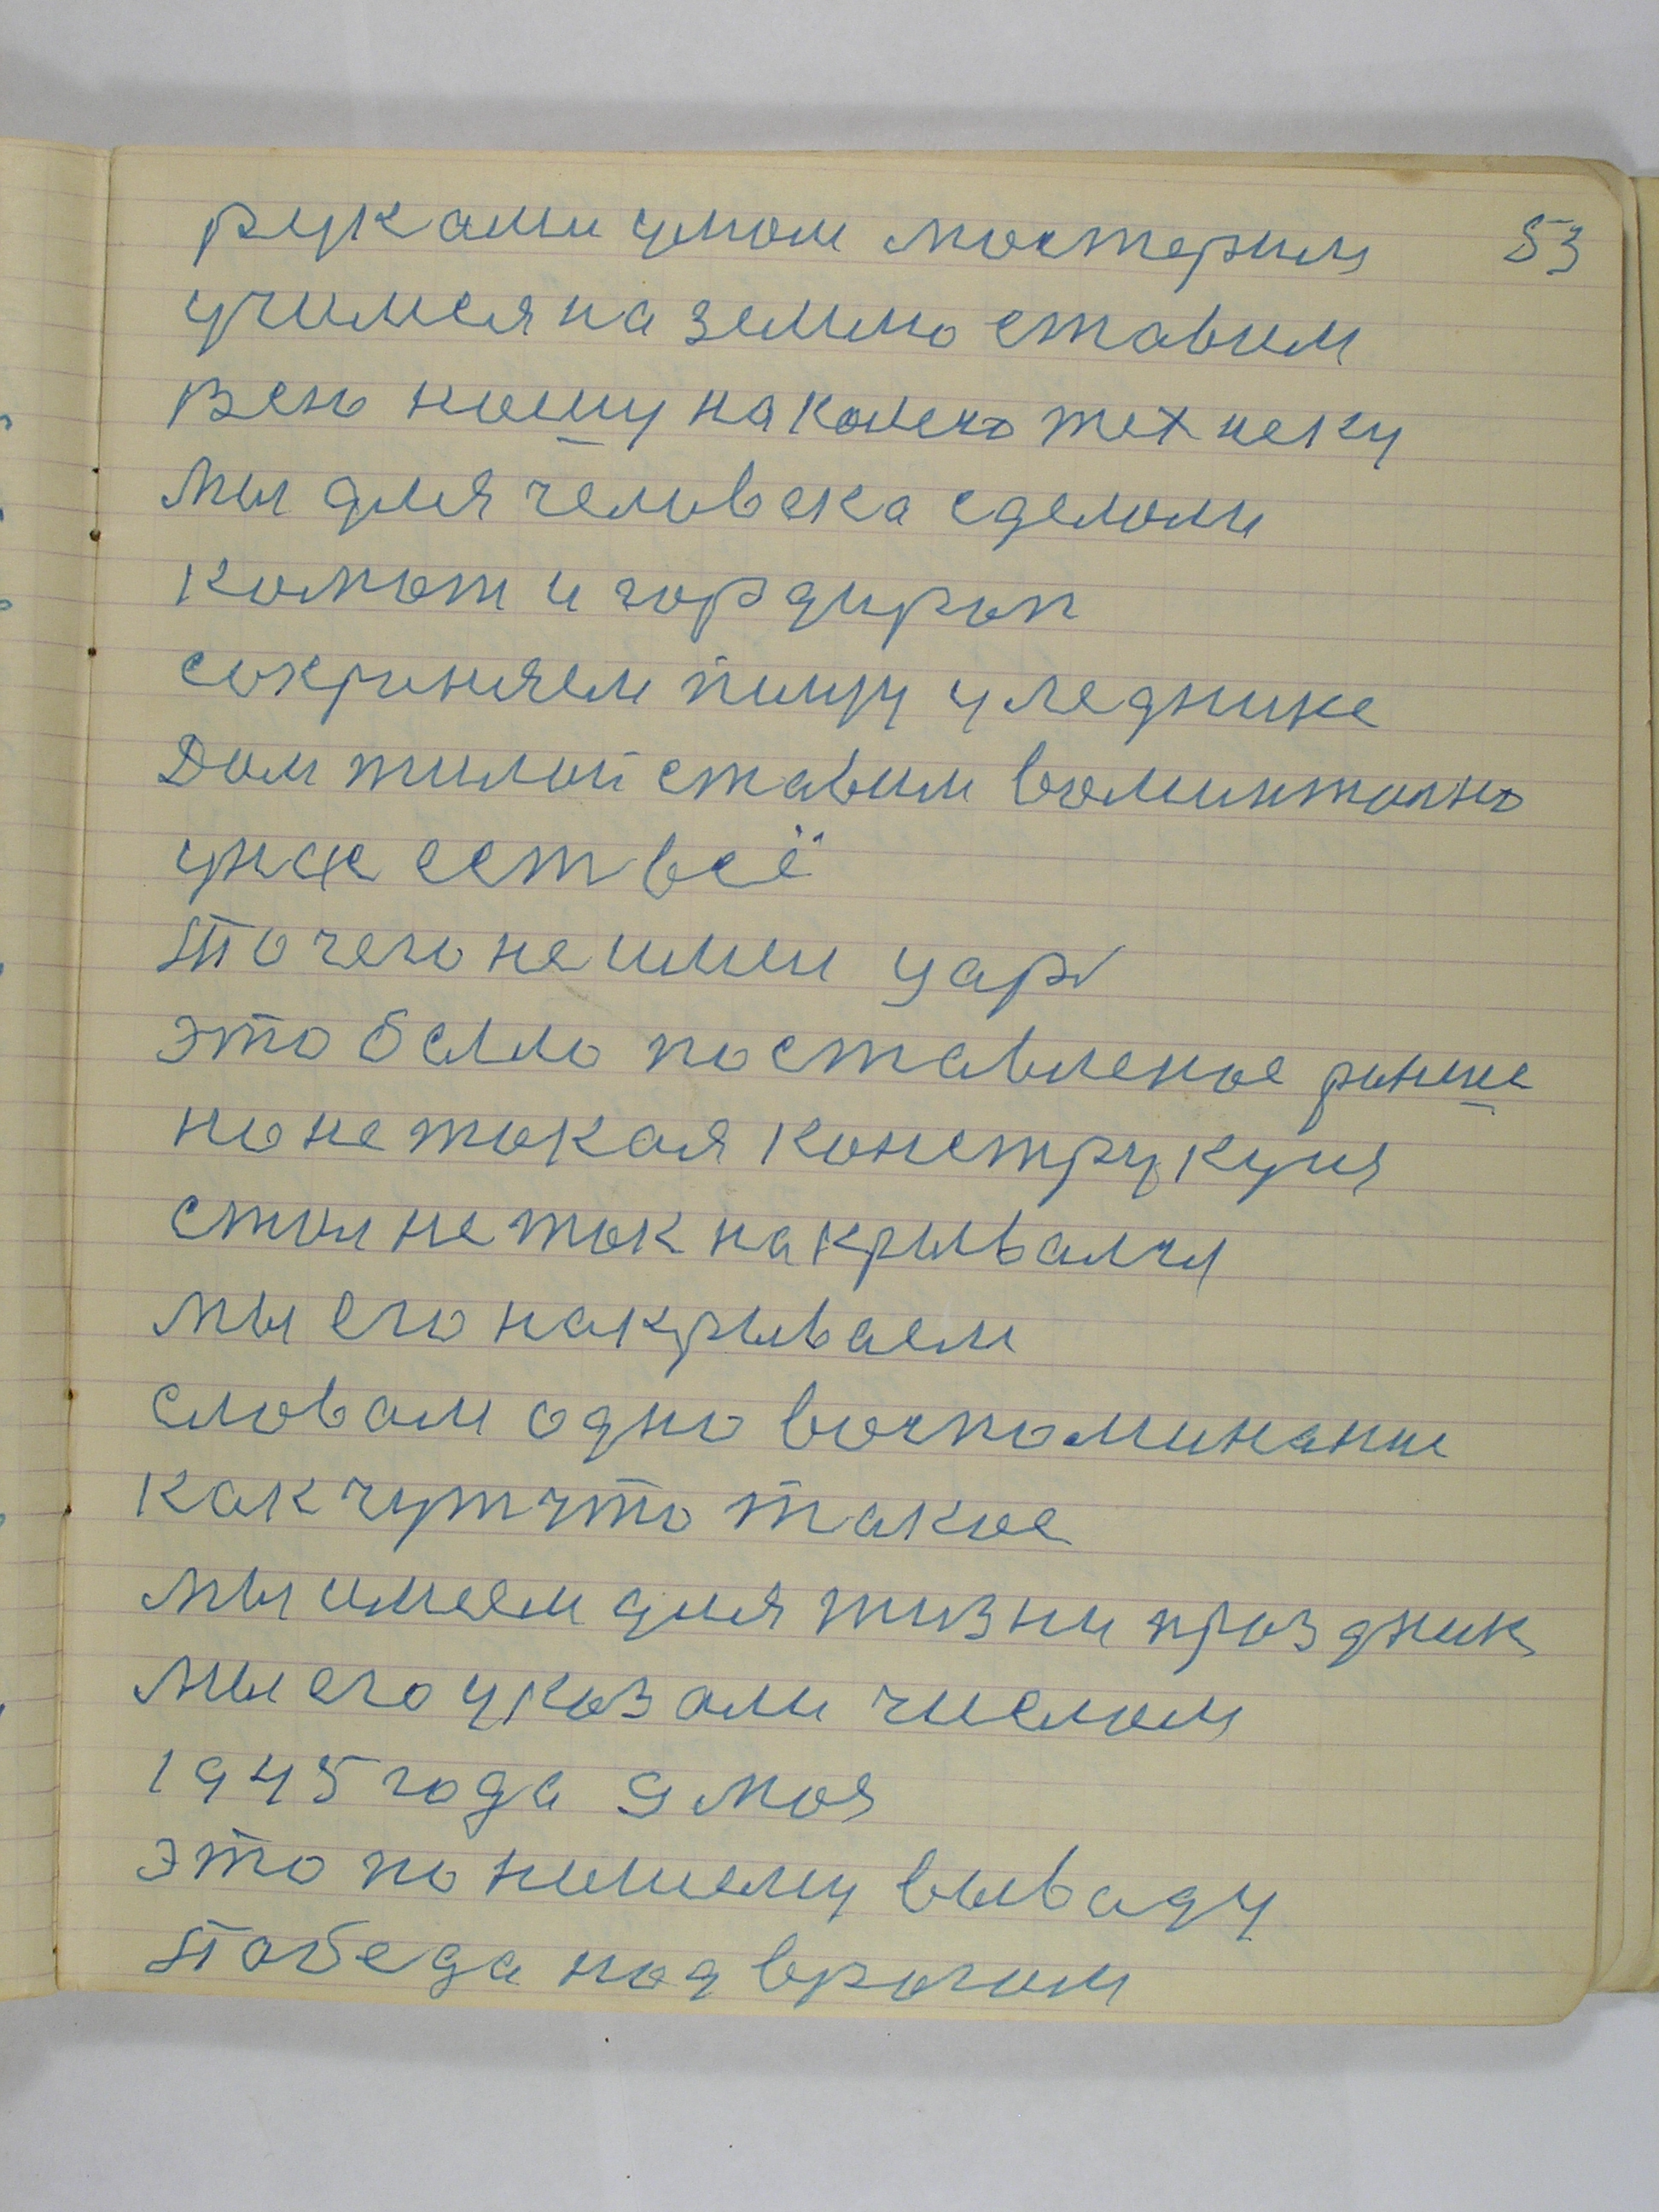 руками умом мостерим 53
учимся на землю ставим
всю ношу на колесо технеку
мы для человека сделали
комот и гордироп
сохроняем пищу у леднике
Дом жилой ставим воминтално
уже ест всё
То чего не имел царь
это было поставленое раньше
но не токая конструкция
стол не ток накрывался
мы его накрываем
словам одно воспоминание
как чут что такое
мы имеем для жизни праздник
мы его указали числом
1945 года 9 моя
это по нашему вываду
Победа над врогом